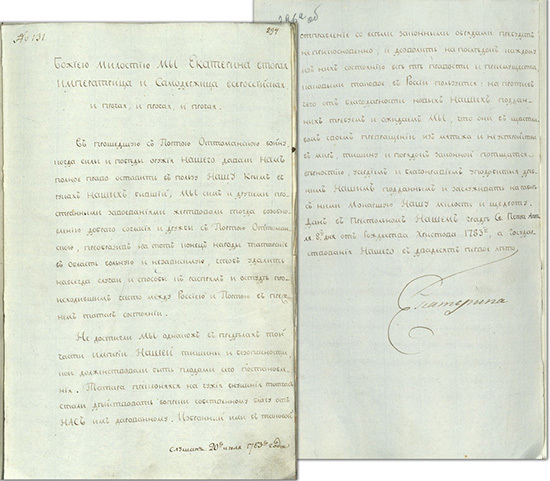 № 131
Божиею милостию Мы Екатерина вторая
Императрица и Самодержица Всероссийская
и прочая, и прочая, и прочая.
Въ прошедшую съ Портою Оттоманскою войну
когда силы и победы оружия Нашего давали Намъ
полное право оставить въ пользу Нашу Крымъ въ
рукахъ Нашихъ бывшей; Мы симъ и другими про-
странными завоеваниями жертвовали тогда возобно-
влению добраго согласия и дружбы съ Портою Оттоман-
скою, преобразивъ на тотъ конецъ народы татарские
въ область вольную и независимую, чтобъ удалить
навсегда случаи и способы къ распрямъ и остуде про-
исходившимъ часто между Россиею и Портою въ преж-
немъ татаръ состоянии.
Не достигли Мы однакожъ въ пределахъ той
части империи Нашей тишины и безопасности
кои долженствовали быть плодами сего постановле-
ния. Татары преклоняся на чужия внушения тотчасъ
стали действовать вопреки собственному благу отъ
НАСЪ имъ дарованному. Избранный ими въ таковой
Слушанъ 20го июля 1783го года
отправление со всеми законными обрядами пребудетъ
неприкосновенно; и дозволить напоследокъ каждому
изъ нихъ состоянию все те правости и преимущества
каковыми таковое въ России пользуется; на противъ
чего отъ благодарности новыхъ Нашихъ поддан-
ныхъ требуемъ и ожидаемъ Мы, что они въ щастли-
вомъ своемъ превращении изъ мятежа и неустройства
въ миръ, тишину и порядокъ законной потщатся
верностию, усердиемъ и благонравиемъ уподобиться древ-
нимъ Нашимъ подданнымъ и заслуживать наравне
съ ними Монаршую Нашу милость и щедроту.
Данъ въ Престольномъ Нашемъ граде Св. Петра апре-
ля 8. дня отъ Рождества Христова 1783го, а государ-
ствования Нашего въ двадесять первое лето.
Екатерина